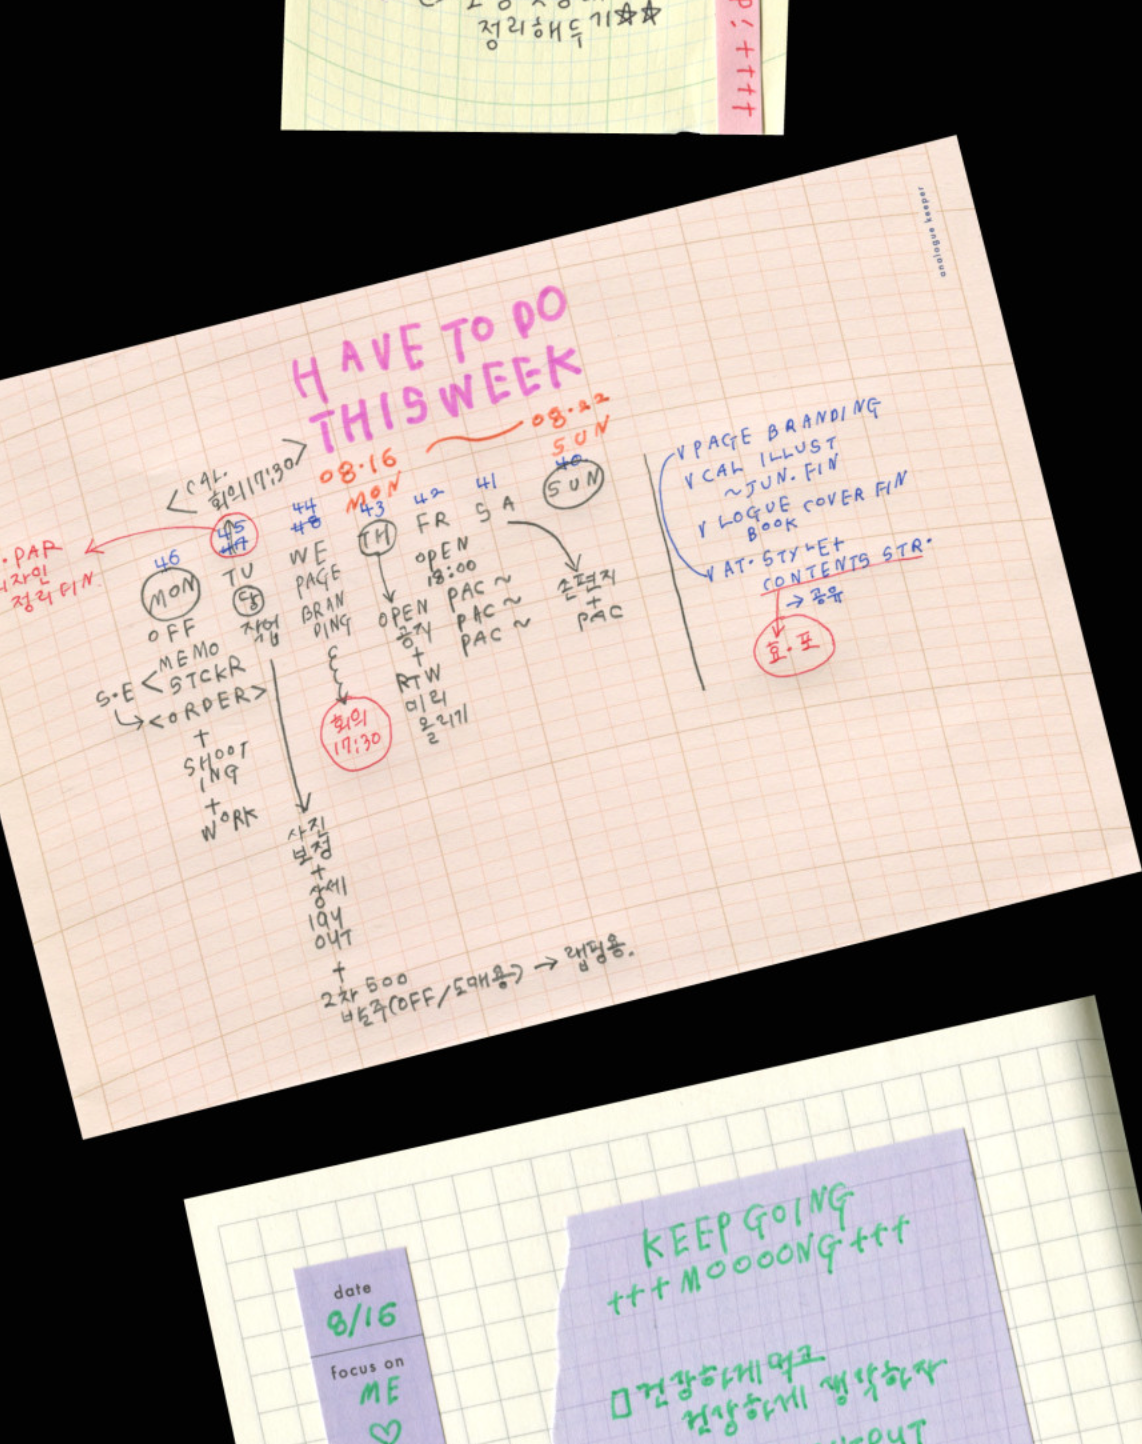 정리해두기☆☆
P:++++
analogue keeper
HAVE TO DO
THIS WEEK
08.16 ~ 08.22
MON SUN
<CAL.
회의 17:30>
.PAR
정리 FIN.
46
MON
OFF
MEMO
S.E < STCKR
↳ <ORDER>
+
SHOOT
ING
+
WORK
45
47
TU
작업
사진
보정
+
상세
lay
OUT
+
2차 500
발주(OFF/도매용) → 랩핑용.
44
WE
PAGE
BRAN
DING
회의
17:30
43
TH
OPEN
공지
+
RTW
미리
올리기
42
FR
OPEN
18:00
PAC ~
PAC ~
PAC ~
41
SA
손편지
+
PAC
40
SUN
∨ PAGE BRANDING
∨ CAL ILLUST
~JUN. FIN
∨ LOGUE COVER FIN
BOOK
∨ AT.STYLE+
CONTENTS STR.
→ 공유
효.포
date
8/16
focus on
ME
♡
KEEP GOING
+++MOOOONG+++
□ 건강하게 먹고
건강하게 생각하자
OUT